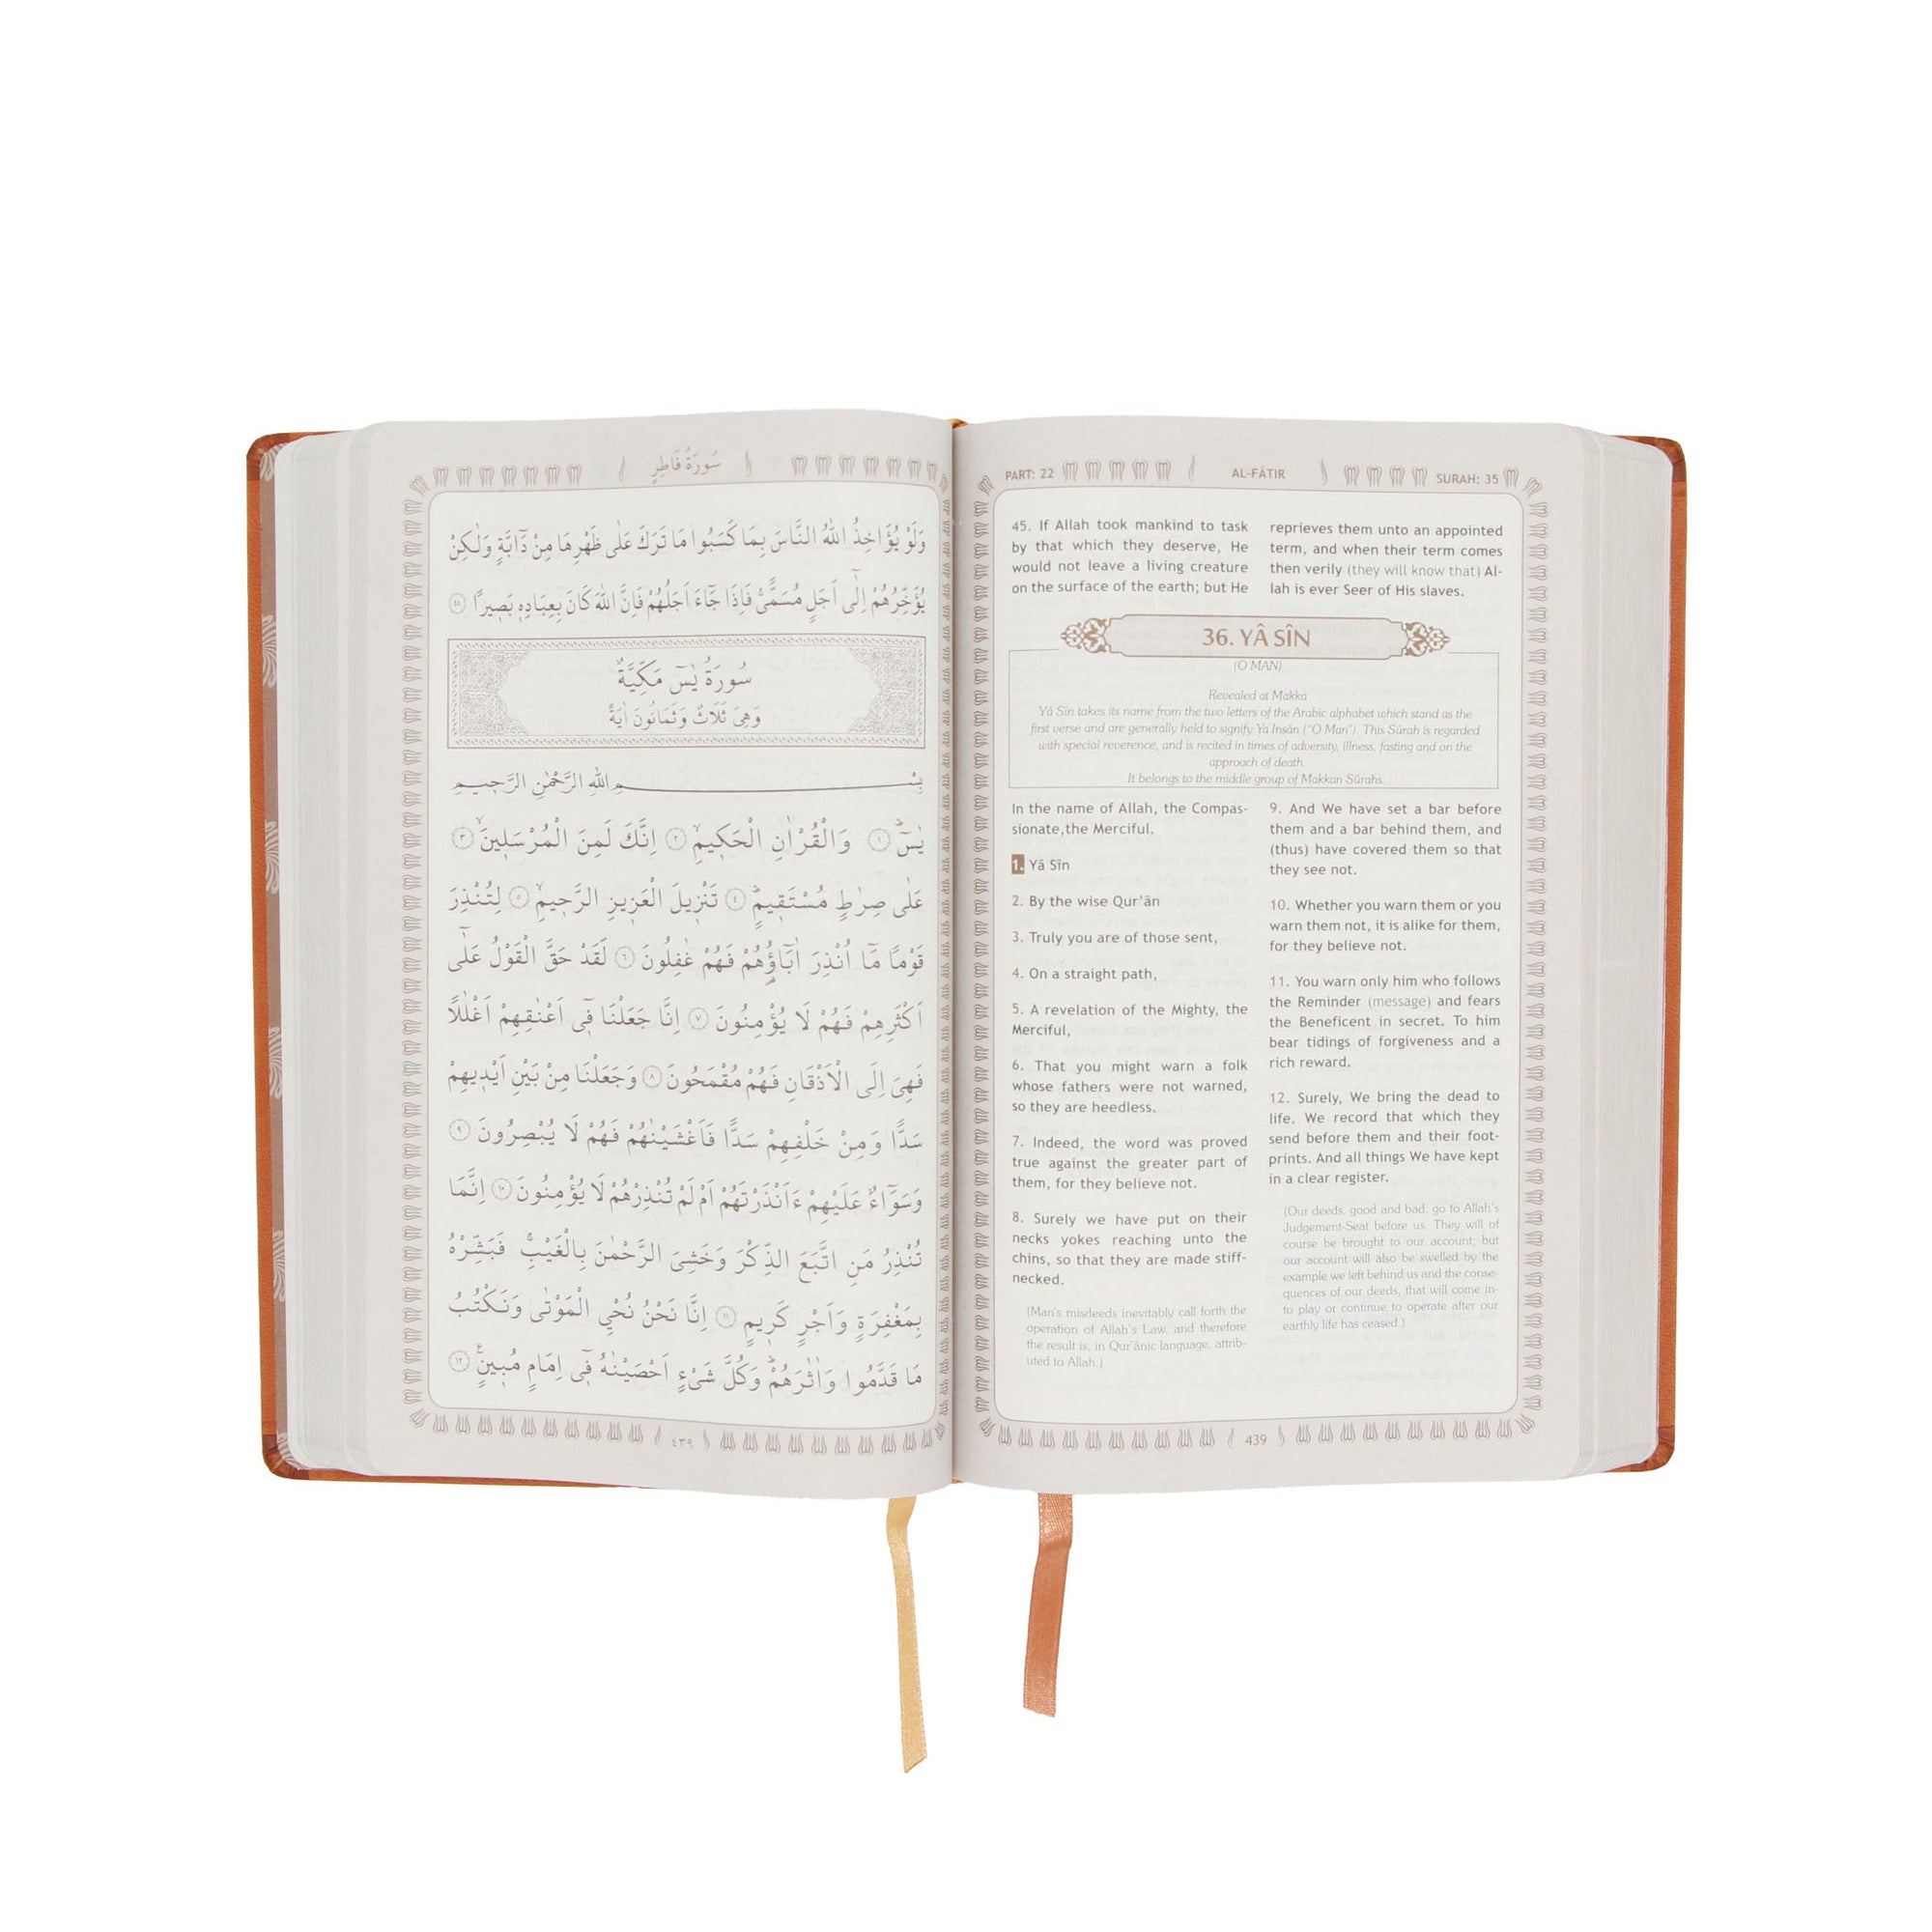 سُورَةُ فَاطِرٍ
وَلَوْ يُؤَاخِذُ اللّٰهُ النَّاسَ بِمَا كَسَبُوا مَا تَرَكَ عَلٰى ظَهْرِهَا مِنْ دَٓابَّةٍ وَلٰكِنْ
يُؤَخِّرُهُمْ اِلٰٓى اَجَلٍ مُسَمًّىۚ فَاِذَا جَٓاءَ اَجَلُهُمْ فَاِنَّ اللّٰهَ كَانَ بِعِبَادِه۪ بَص۪يرًا ٤٥
سُورَةُ يٰسٓ مَكِّيَّةٌ
وَهِىَ ثَلَاثٌ وَثَمَانُونَ اٰيَةً
بِسْمِ اللّٰهِ الرَّحْمٰنِ الرَّح۪يمِ
يٰسٓۜ ١ وَالْقُرْاٰنِ الْحَك۪يمِۙ ٢ اِنَّكَ لَمِنَ الْمُرْسَل۪ينَۙ ٣
عَلٰى صِرَاطٍ مُسْتَق۪يمٍۜ ٤ تَنْز۪يلَ الْعَز۪يزِ الرَّح۪يمِۙ ٥ لِتُنْذِرَ
قَوْمًا مَٓا اُنْذِرَ اٰبَٓاؤُ۬هُمْ فَهُمْ غَافِلُونَ ٦ لَقَدْ حَقَّ الْقَوْلُ عَلٰٓى
اَكْثَرِهِمْ فَهُمْ لَا يُؤْمِنُونَ ٧ اِنَّا جَعَلْنَا ف۪ٓى اَعْنَاقِهِمْ اَغْلَالًا
فَهِىَ اِلَى الْاَذْقَانِ فَهُمْ مُقْمَحُونَ ٨ وَجَعَلْنَا مِنْ بَيْنِ اَيْد۪يهِمْ
سَدًّا وَمِنْ خَلْفِهِمْ سَدًّا فَاَغْشَيْنَاهُمْ فَهُمْ لَا يُبْصِرُونَ ٩
وَسَوَٓاءٌ عَلَيْهِمْ ءَاَنْذَرْتَهُمْ اَمْ لَمْ تُنْذِرْهُمْ لَا يُؤْمِنُونَ ١٠ اِنَّمَا
تُنْذِرُ مَنِ اتَّبَعَ الذِّكْرَ وَخَشِىَ الرَّحْمٰنَ بِالْغَيْبِۚ فَبَشِّرْهُ
بِمَغْفِرَةٍ وَاَجْرٍ كَر۪يمٍ ١١ اِنَّا نَحْنُ نُحْيِ الْمَوْتٰى وَنَكْتُبُ
مَا قَدَّمُوا وَاٰثَارَهُمْۜ وَكُلَّ شَىْءٍ اَحْصَيْنَاهُ ف۪ٓى اِمَامٍ مُب۪ينٍ۟ ١٢
٤٣٩
PART: 22 AL-FÂTIR SURAH: 35
45. If Allah took mankind to task
by that which they deserve, He
would not leave a living creature
on the surface of the earth; but He
reprieves them unto an appointed
term, and when their term comes
then verily (they will know that) Al-
lah is ever Seer of His slaves.
36. YÂ SÎN
(O MAN)
Revealed at Makka
Yâ Sîn takes its name from the two letters of the Arabic alphabet which stand as the
first verse and are generally held to signify Ya Insân ("O Man"). This Sûrah is regarded
with special reverence, and is recited in times of adversity, illness, fasting and on the
approach of death.
It belongs to the middle group of Makkan Sûrahs.
In the name of Allah, the Compas-
sionate,the Merciful.
1. Yâ Sîn
2. By the wise Qur'ân
3. Truly you are of those sent,
4. On a straight path,
5. A revelation of the Mighty, the
Merciful,
6. That you might warn a folk
whose fathers were not warned,
so they are heedless.
7. Indeed, the word was proved
true against the greater part of
them, for they believe not.
8. Surely we have put on their
necks yokes reaching unto the
chins, so that they are made stiff-
necked.
(Man's misdeeds inevitably call forth the
operation of Allah's Law, and therefore
the result is, in Qur'ânic language, attrib-
uted to Allah.)
9. And We have set a bar before
them and a bar behind them, and
(thus) have covered them so that
they see not.
10. Whether you warn them or you
warn them not, it is alike for them,
for they believe not.
11. You warn only him who follows
the Reminder (message) and fears
the Beneficent in secret. To him
bear tidings of forgiveness and a
rich reward.
12. Surely, We bring the dead to
life. We record that which they
send before them and their foot-
prints. And all things We have kept
in a clear register.
(Our deeds, good and bad, go to Allah's
Judgement-Seat before us. They will of
course be brought to our account; but
our account will also be swelled by the
example we left behind us and the conse-
quences of our deeds, that will come in-
to play or continue to operate after our
earthly life has ceased.)
439